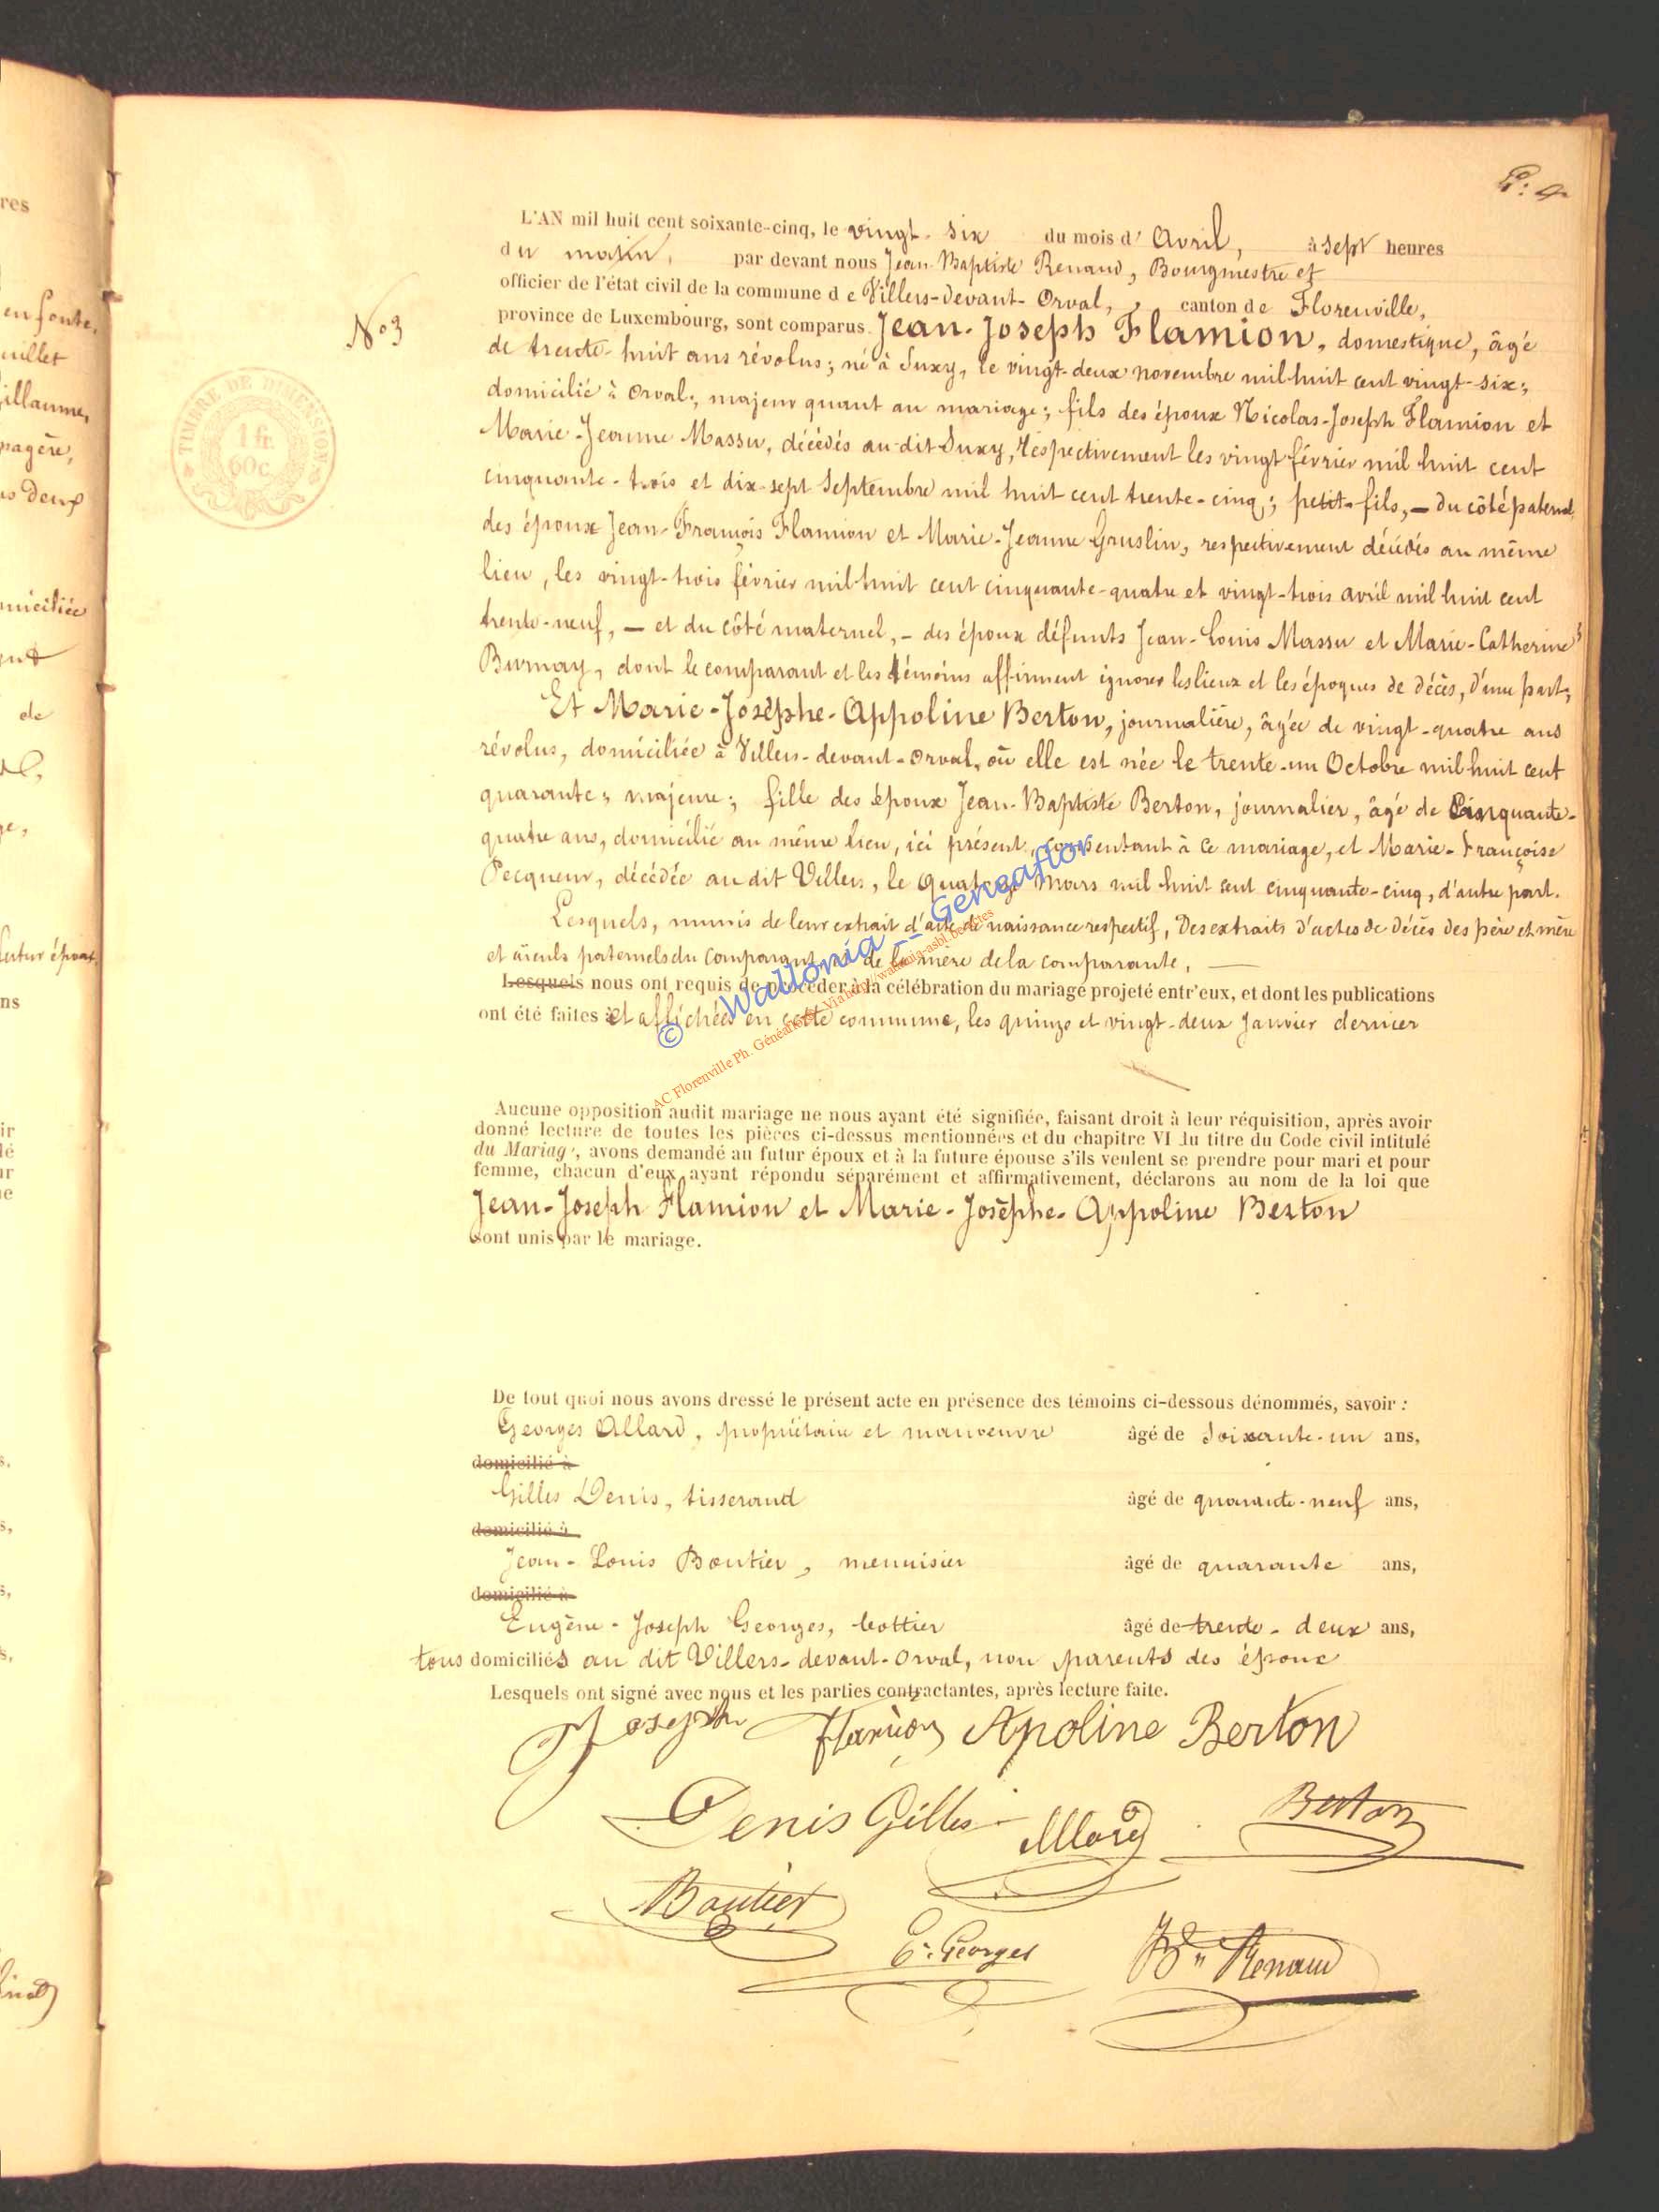 P: 4
L'AN mil huit cent soixante-cinq, le vingt-six du mois d'Avril, à sept heures
du matin, par devant nous Jean-Baptiste Renaud, Bourgmestre et
officier de l'état civil de la commune de Villers-devant-Orval, canton de Florenville,
N° 3
province de Luxembourg, sont comparus Jean-Joseph Flamion, domestique, âgé
de trente-huit ans révolus; né à Suxy, le vingt-deux novembre mil huit cent vingt-six;
domicilié à Orval; majeur quant au mariage; fils des époux Nicolas-Joseph Flamion et
Marie-Jeanne Massu, décédés au dit Suxy, respectivement les vingt février mil huit cent
cinquante-trois et dix-sept Septembre mil huit cent trente-cinq; petit-fils, — du côté paternel
des époux Jean-François Flamion et Marie-Jeanne Gruslin, respectivement décédés au même
lieu, les vingt-trois février mil huit cent cinquante-quatre et vingt-trois avril mil huit cent
trente-neuf, — et du côté maternel, — des époux défunts Jean-Louis Massu et Marie-Catherine
Burnay, dont le comparant et les témoins affirment ignorer les lieux et les époques de décès, d'une part;
Et Marie-Josèphe-Appoline Berton, journalière, âgée de vingt-quatre ans
révolus, domiciliée à Villers-devant-Orval, où elle est née le trente-un Octobre mil huit cent
quarante; majeure; fille des époux Jean-Baptiste Berton, journalier, âgé de Cinquante-
quatre ans, domicilié au même lieu, ici présent, consentant à ce mariage, et Marie-Françoise
Pecqueur, décédée au dit Villers, le quatorze Mars mil huit cent cinquante-cinq, d'autre part.
Lesquels, munis de leur extrait d'acte de naissance respectif, Des extraits d'actes de décès des père et mère
et aïeuls paternels du comparant, et de la mère de la comparante, —
Lesquels nous ont requis de procéder à la célébration du mariage projeté entr'eux, et dont les publications
ont été faites et affichées en cette commune, les quinze et vingt-deux Janvier dernier
TIMBRE DE DIMENSION
1 fr.
60c.
© Wallonia -- Geneaflor
AC Florenville Ph. Généaflor
Aucune opposition audit mariage ne nous ayant été signifiée, faisant droit à leur réquisition, après avoir
donné lecture de toutes les pièces ci-dessus mentionnées et du chapitre VI du titre du Code civil intitulé
du Mariage, avons demandé au futur époux et à la future épouse s'ils veulent se prendre pour mari et pour
femme, chacun d'eux ayant répondu séparément et affirmativement, déclarons au nom de la loi que
Jean-Joseph Flamion et Marie-Josèphe-Appoline Berton
sont unis par le mariage.
De tout quoi nous avons dressé le présent acte en présence des témoins ci-dessous dénommés, savoir :
Georges Allard, propriétaire et manoeuvre âgé de soixante-un ans,
domicilié à
Gilles Denis, tisserand âgé de quarante-neuf ans,
domicilié à
Jean-Louis Boutier, menuisier âgé de quarante ans,
domicilié à
Eugène-Joseph Georges, bottier âgé de trente-deux ans,
tous domiciliés au dit Villers-devant-Orval, non parents des époux
Lesquels ont signé avec nous et les parties contractantes, après lecture faite.
Joseph Flamion Apoline Berton
Denis Gilles Allard Berton
Boutier
E. Georges Bte Renaud